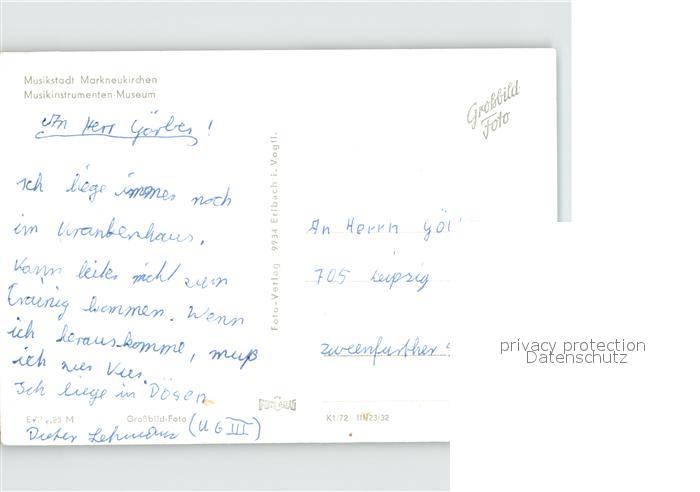 Musikstadt Markneukirchen
Musikinstrumenten-Museum
Großbild
Foto
An Herr Görbes!
ich liege immer noch
im Krankenhaus.
Kann leider nicht zum
Trainig kommen. Wenn
ich herauskomme, muß
ich zur Kur.
Ich liege in Dösen
Dieter Lehmann (U6 III)
Foto-Verlag 9934 Erlbach i. Vogtl.
An Herrn Gör
705 Leipzig
Zweenfurther
25 M
Großbild-Foto
K1/72 III/23/32
privacy protection
Datenschutz